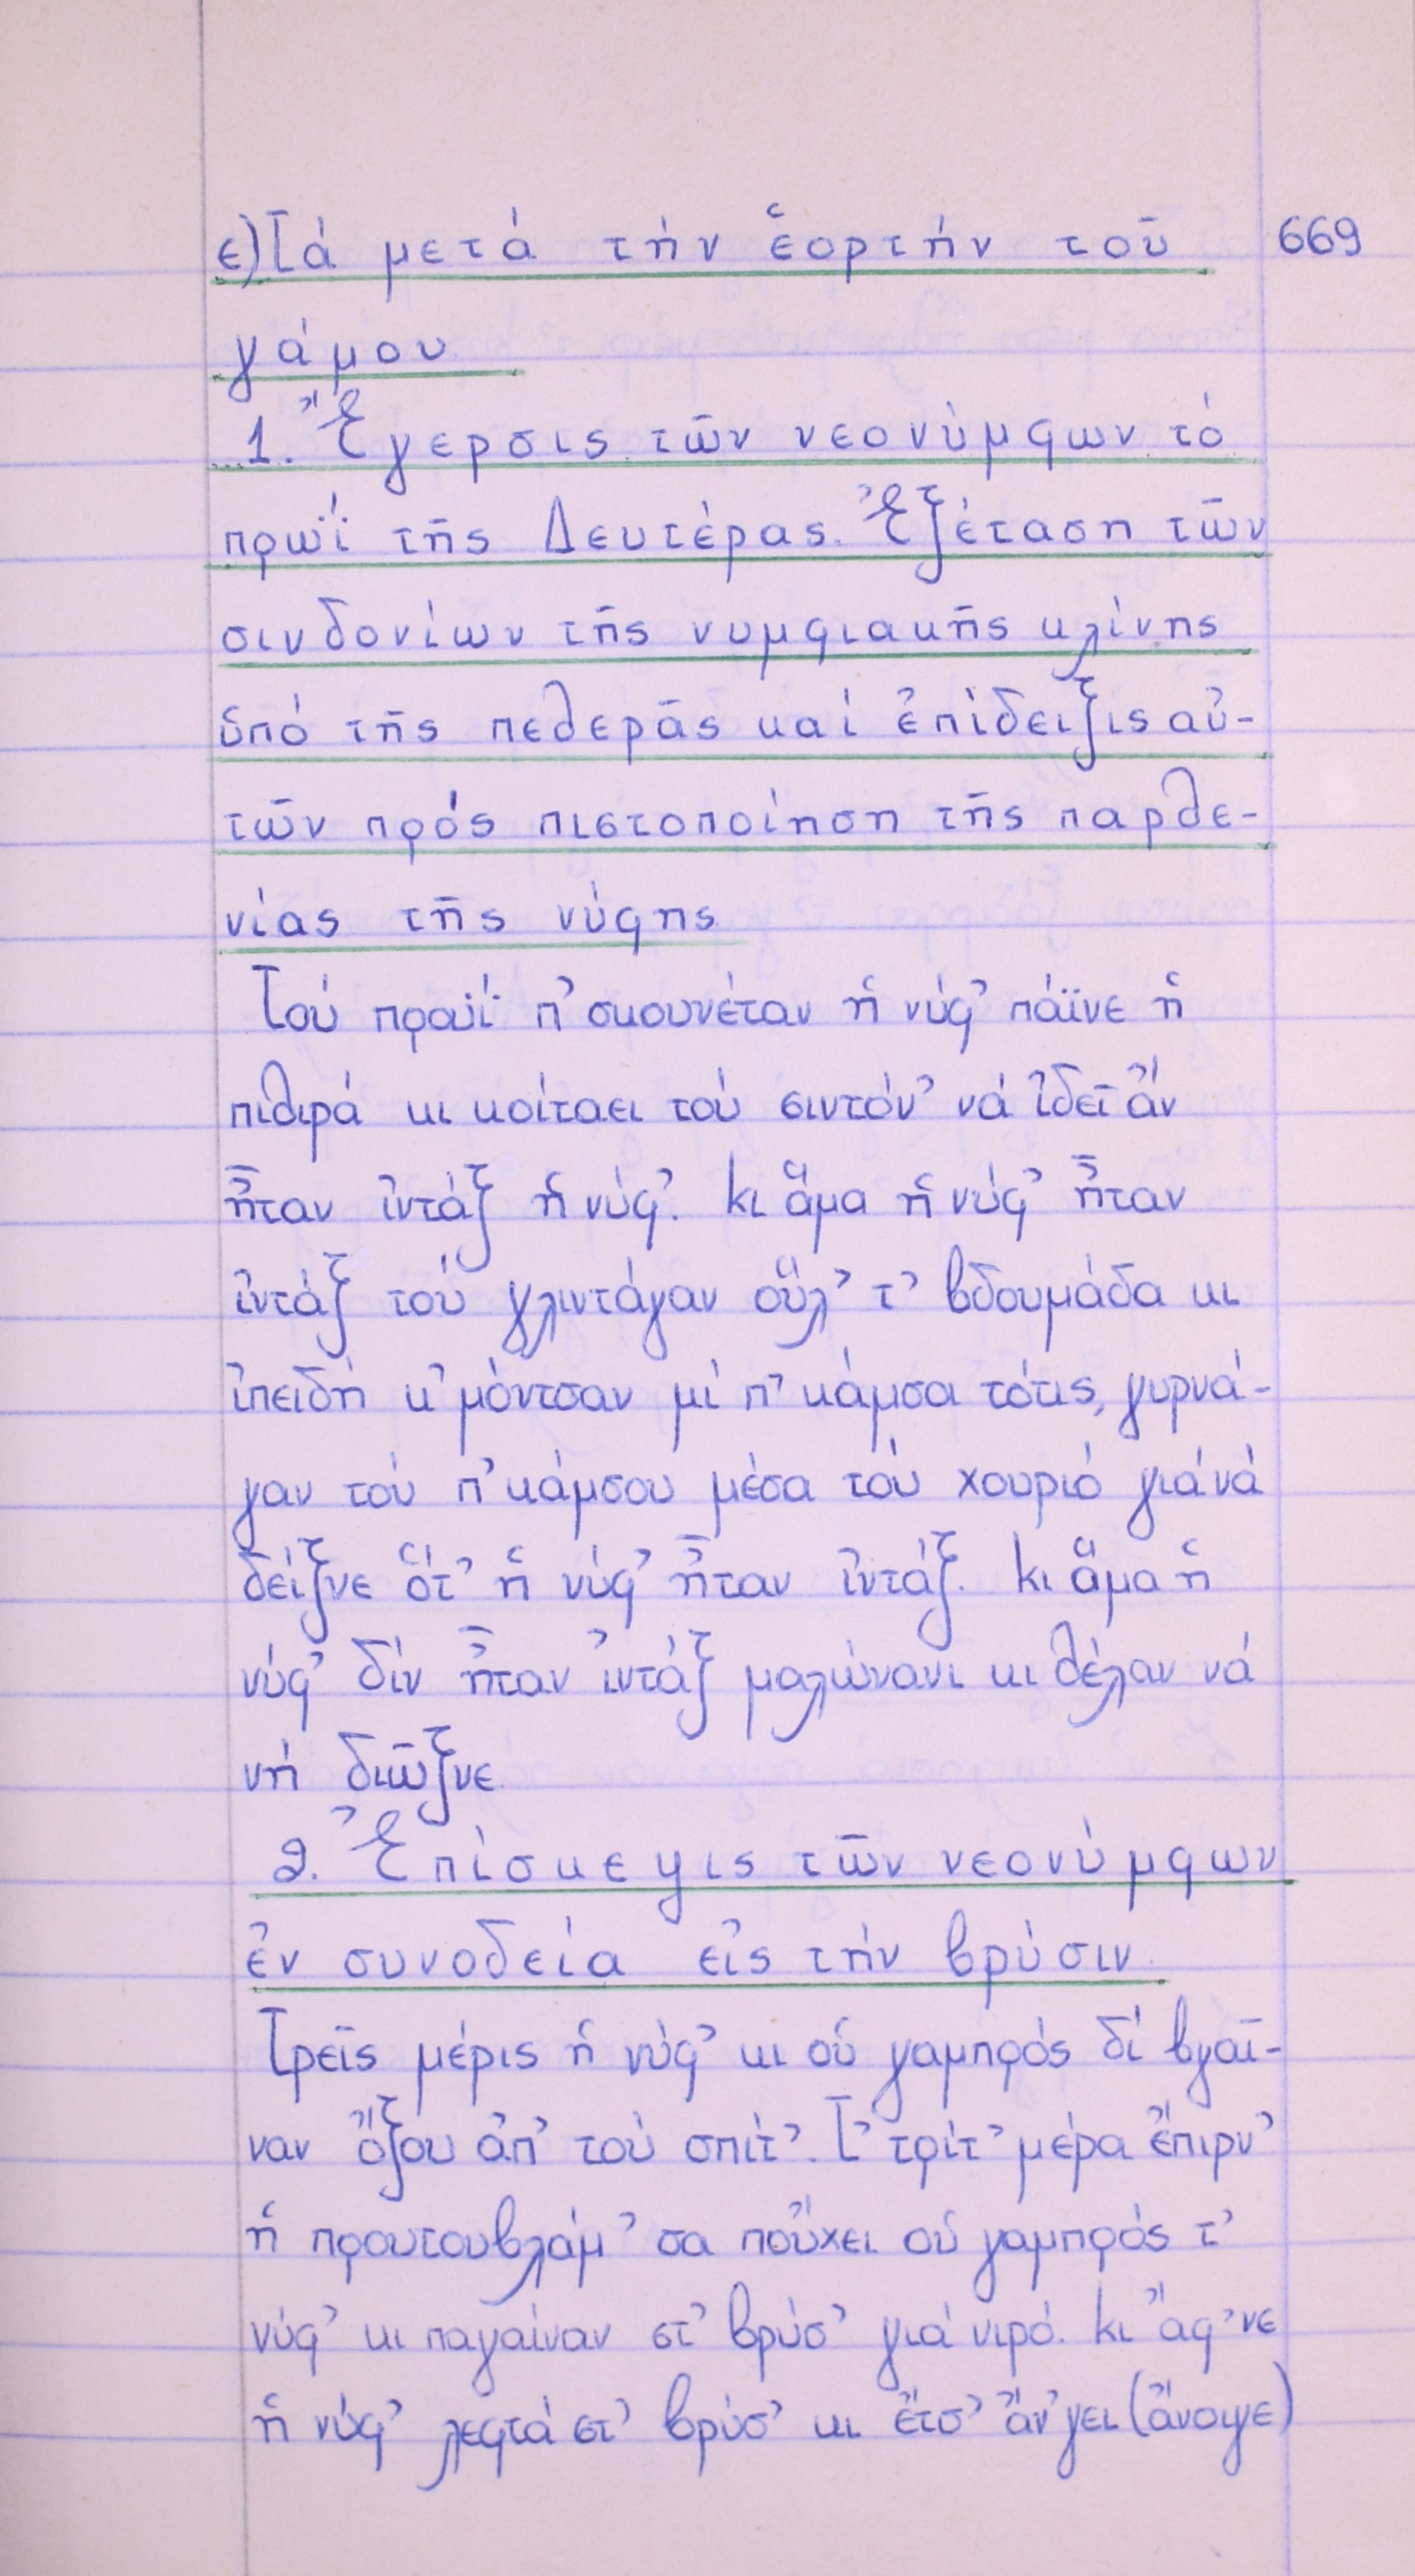 ε) Τά μετά τήν ἑορτήν τοῦ 669
γάμου
1. Ἔγερσις τῶν νεονύμφων τό
πρωΐ τῆς Δευτέρας. Ἐξέταση τῶν
σινδονίων τῆς νυμφιακῆς κλίνης
ὑπό τῆς πεθερᾶς καί ἐπίδειξις αὐ-
τῶν πρός πιστοποίηση τῆς παρθε-
νίας τῆς νύφης
Τού πρωΐ π' σκουνέταν ἡ νύφ' πάϊνε ἡ
πιθιρά κι κοίταει τού σιντόν' νά ἰδεῖ ἄν
ἦταν ἰντάξ ἡ νύφ'. Κι ἅμα ἡ νύφ' ἦταν
ἰντάξ τού γλιντάγαν οὕλ' τ' βδουμάδα κι
ἰπειδή κ'μόντσαν μί π'κάμσα τότις, γυρνά-
γαν τού π'κάμσου μέσα τού χουριό γιά νά
δείξνε ὅτ' ἡ νύφ' ἦταν ἰντάξ. Κι ἅμα ἡ
νύφ' δίν ἦταν ἰντάξ μαλώνανι κι θέλαν νά
νή διῶξνε
2. Ἐπίσκεψις τῶν νεονύμφων
ἐν συνοδεία εἰς τήν βρύσιν
Τρεῖς μέρις ἡ νύφ' κι οὑ γαμπρός δί βγαῖ-
ναν ὄξου ἀπ' τού σπίτ'. Τ' τρίτ' μέρα ἔπιρν'
ἡ πρoυτουβλάμ'σα πoὔχει οὑ γαμπρός τ'
νύφ' κι παγαίναν στ' βρύσ' γιά νιρό. Κι ἄφ'νε
ἡ νύφ' λεφτά στ' βρύσ' κι ἔτσ' ἄν'γει (ἄνοιγε)